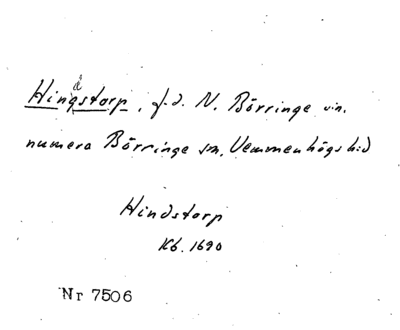 Hindstorp, f.d. N. Börringe sn.
numera Börringe sn, Vemmenhögs hd
Hindstorp
Kb. 1690
Nr 7506